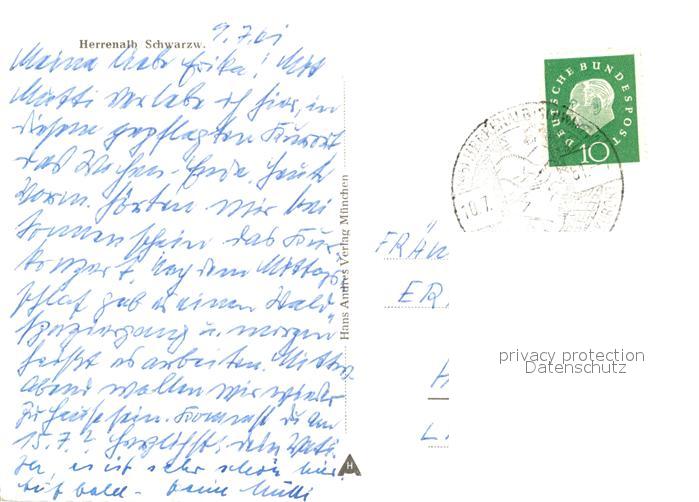 Herrenalb Schwarzw.
9.7.61
Meine liebe Erika! Mit
Mutti verlebe ich hier, in
diesem gepflegten Kurort
das Wochen-Ende. Heute
Vorm. hörten wir bei
Sonnenschein das Kur-
konzert, nach dem Mittags-
schlaf gab es einen Wald-
spaziergang u. morgen
heißt es arbeiten. 
Abend wollen wir wieder
zu Hause sein. Kommst du am
15.7.? Herzlichst, dein Vati.
Ja, es ist sehr schön hier.
Auf bald - deine Mutti
Hans Andres Verlag München
H
DEUTSCHE BUNDESPOST
10
10.7.
FRÄU
ER
H
L.
privacy protection
Datenschutz